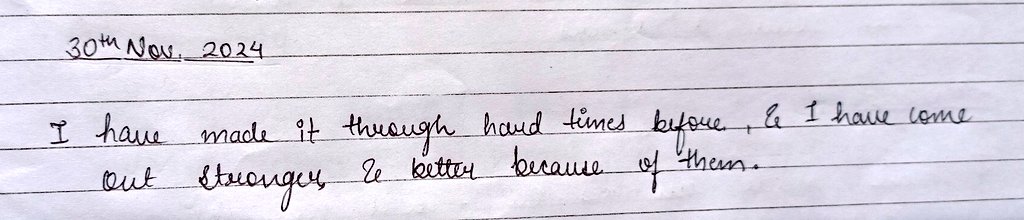 30th Nov. 2024
I have made it through hard times before, & I have come
out stronger & better because of them.